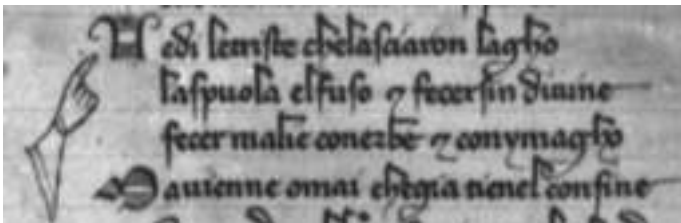 Vedi letriste chelasciaron lagho
laspuola elfuso ⁊ fecersin divine
fecer malie conerbe ⁊ conymagho
Mavienne omai chegia tienel confine